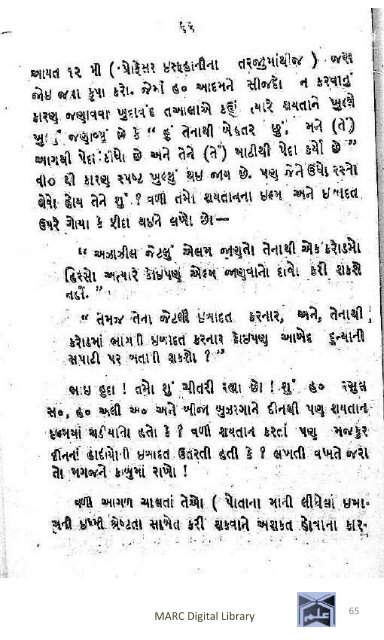 ૬૬
આયત ૧૨ મી (પ્રોફેસર ઇસ્ફહાનીના તરજુમામાંથીજ) જરા
જોઇ જવા કૃપા કરો. જેમાં હ૦ આદમને સીજદો ન કરવાનું
કારણ જણાવવા ખુદાવંદ તઆલાએ કહ્યું ત્યારે શયતાને ખુલ્લે
ખુલ્લું જણાવ્યું છે કે “ હું તેનાથી બેહતર છું, મને (તેં)
આગથી પેદા કીધો છે અને તેને (તેં) માટીથી પેદા કર્યો છે ”
વી૦ થી કારણ સ્પષ્ટ ખુલ્લું થઇ જાય છે. પણ જેને ઉંધો રસ્તો
લેવો હોય તેને શું ? વળી તમો શયતાનના ઇલ્મ અને ઇબાદત
ઉપરે ગોયા કે ફીદા થઇને લખો છો—
“ અઝાઝીલ જેટલું એલમ જાણતો તેનાથી એક કરોડમો
હિસ્સો અત્યારે કોઇપણ એલ્મ જાણવાનો દાવો કરી શકશે
નહીં. ”
“ તેમજ તેના જેટલી ઇબાદત કરનાર, અને, તેનાથી
કરોડમાં ભાગની ઇબાદત કરનાર કોઇપણ આબેદ દુન્યાની
સપાટી પર બતાવી શકશો ? ”
ભાઇ હુદા ! તમો શું ચીતરી રહ્યા છો ! શું હ૦ રસુલ
સ૦, હ૦ અલી અ૦ અને બીજા બુઝર્ગાને દીનથી પણ શયતાન
ઇલ્મમાં ચડીયાતો હતો કે ? વળી શયતાન કરતાં પણ મજકુર
દીનના હાદીયોની ઇબાદત ઉતરતી હતી કે ? લખતી વખતે જરા
તો મગજને કાબુમાં રાખો !
વળી આગળ ચાલતાં તેઓ ( પોતાના માની લીધેલા ઇમા-
મની ઇલ્મી શ્રેષ્ટતા સાબેત કરી શકવાને અશક્ત હોવાના કાર-
MARC Digital Library
علم
65